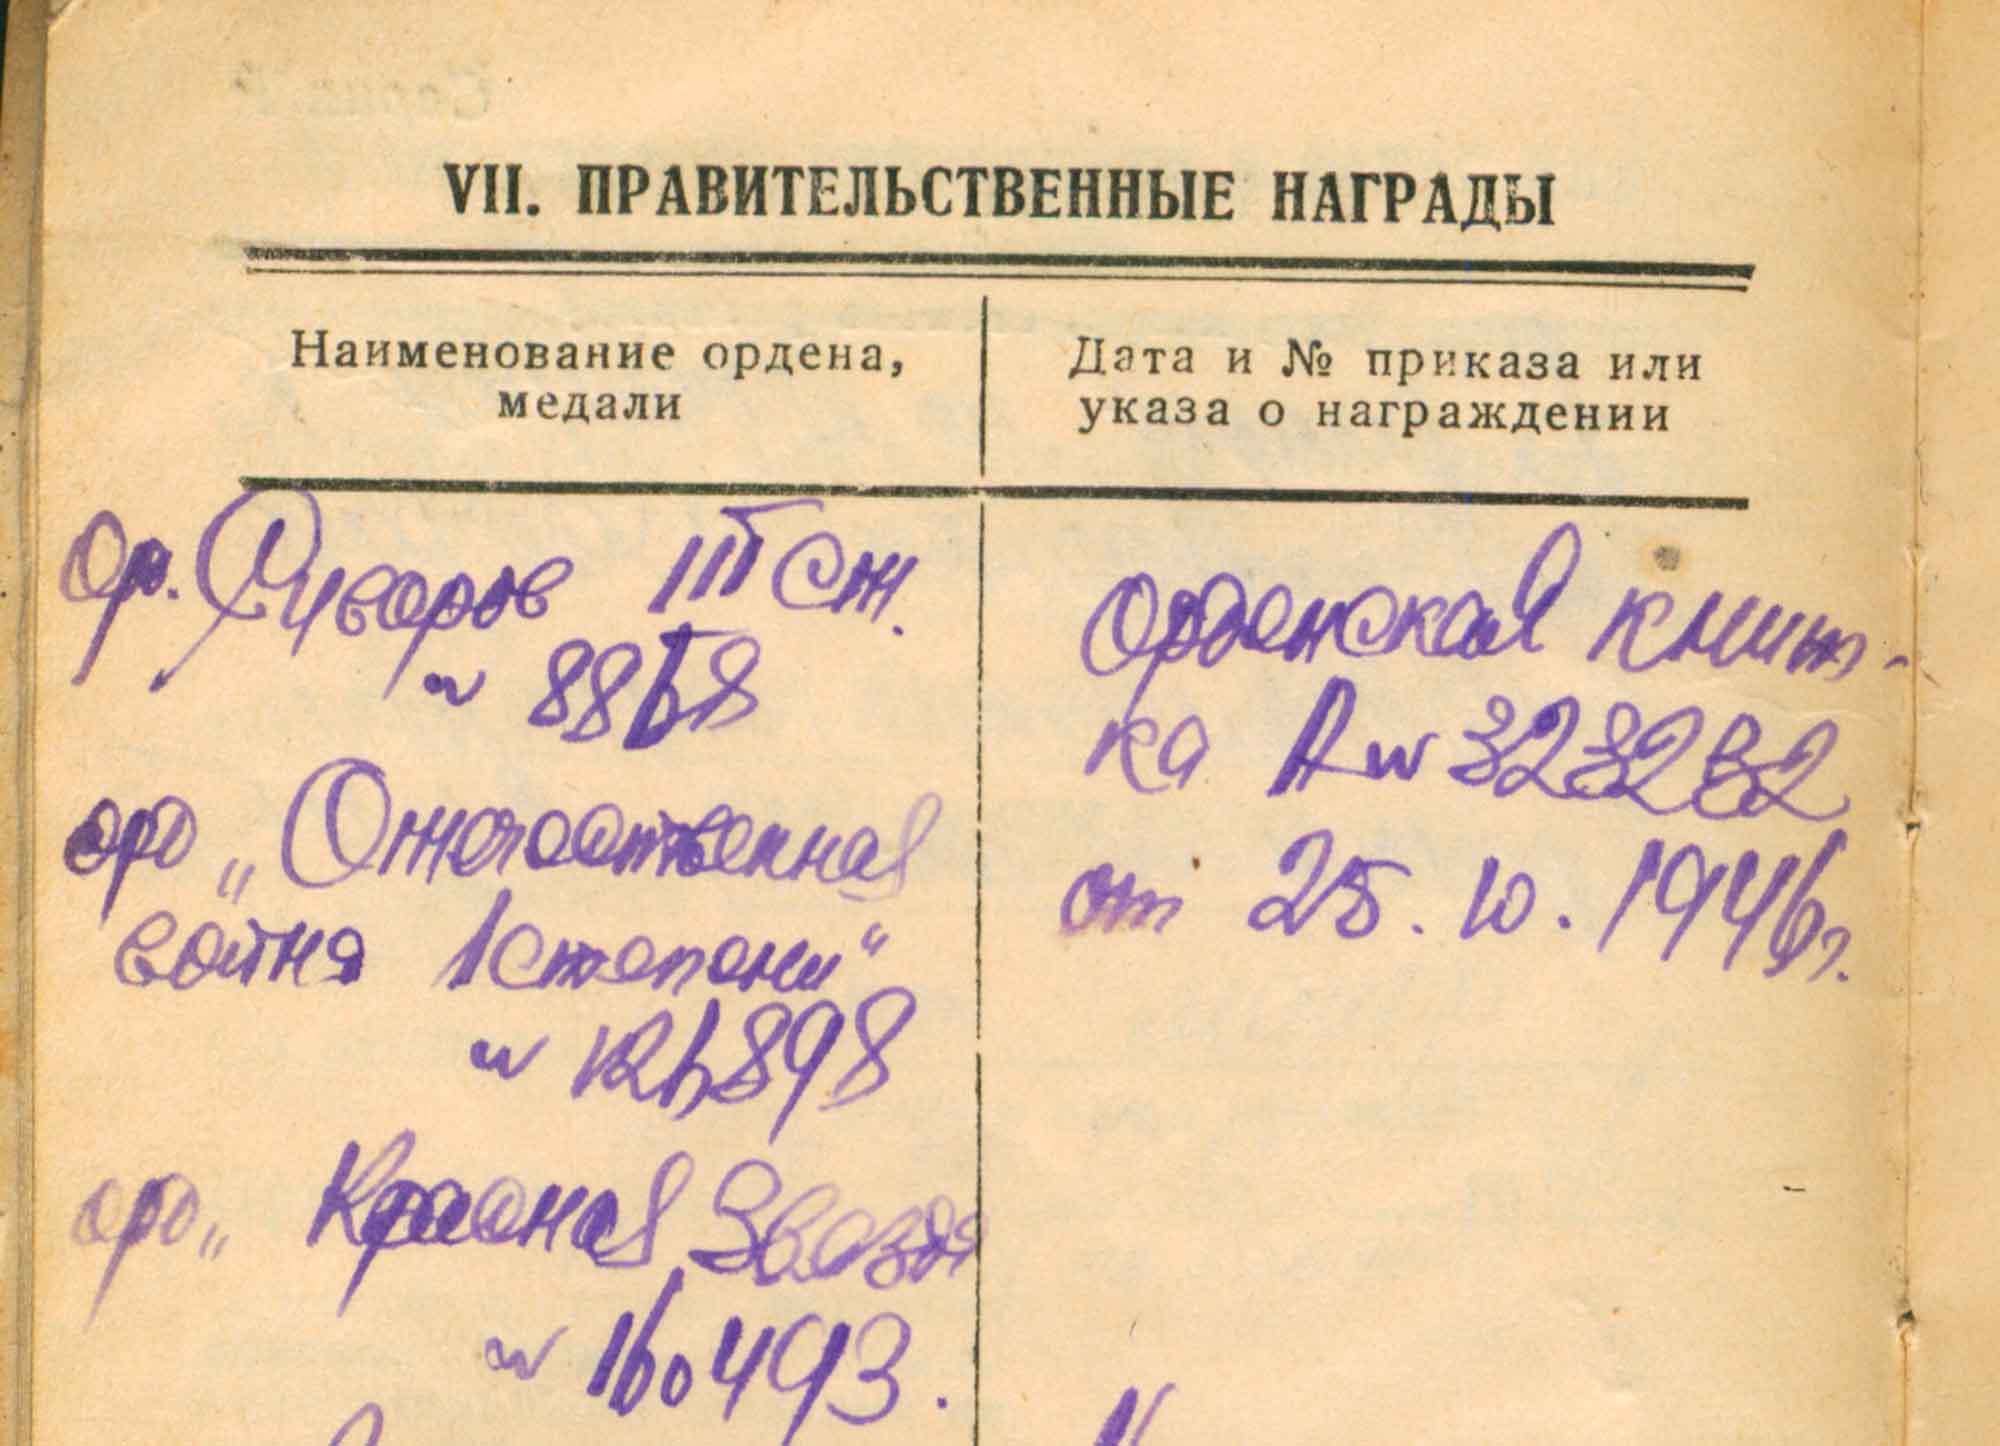 VII. ПРАВИТЕЛЬСТВЕННЫЕ НАГРАДЫ
Наименование ордена,
медали
Дата и № приказа или
указа о награждении
Ор. Суворов III ст.
№ 8868
орд „Отечественная
война 1 степени“
№ 126898
орд „ Красная Звезда
№ 160493.
Орденская книж-
ка А № 323232
от 25. 10. 1946 г.